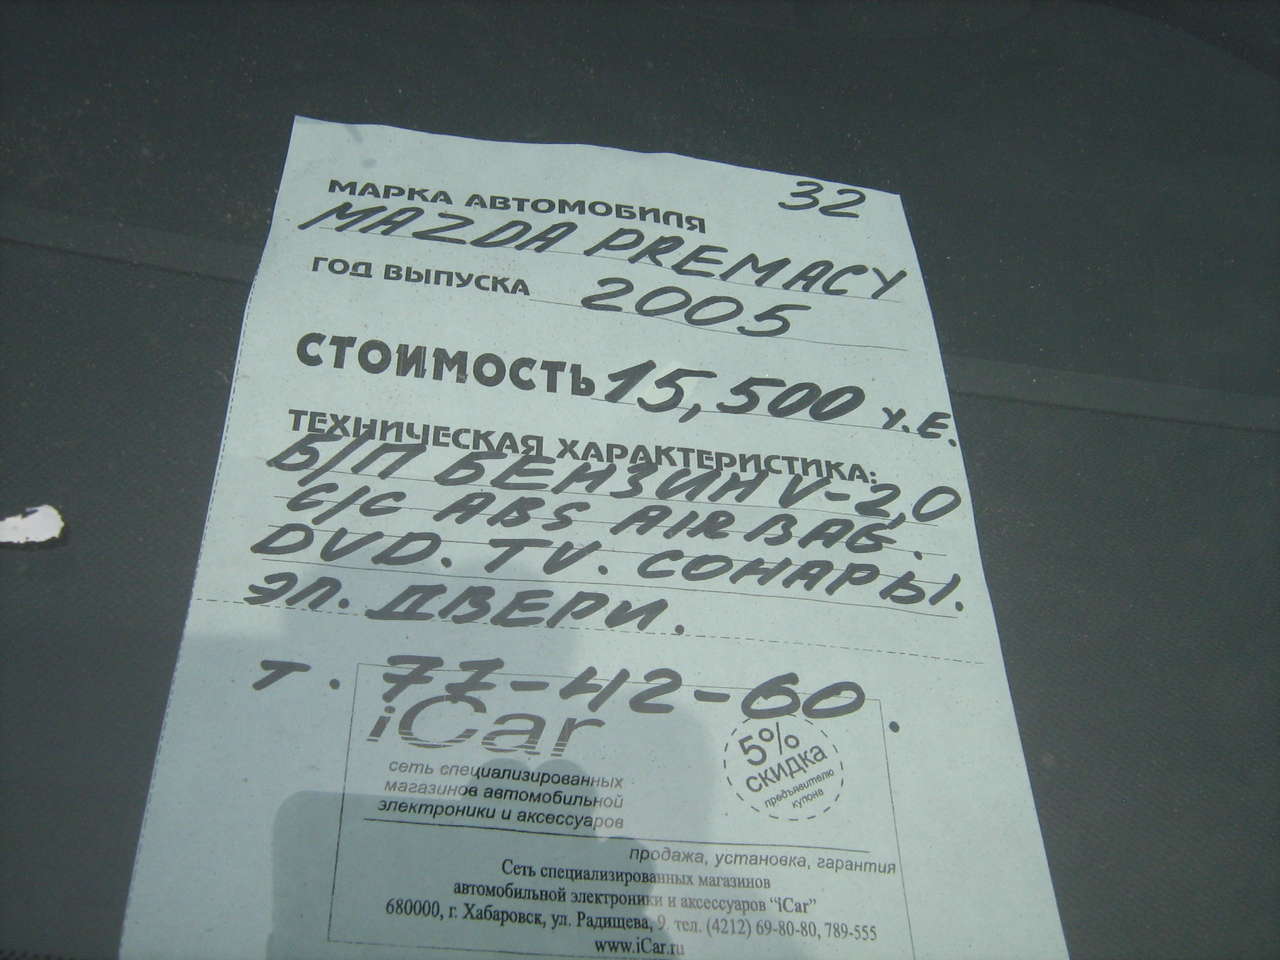 32
МАРКА АВТОМОБИЛЯ
MAZDA PREMACY
ГОД ВЫПУСКА 2005
СТОИМОСТЬ 15,500 У.Е.
ТЕХНИЧЕСКАЯ ХАРАКТЕРИСТИКА:
Б/П БЕНЗИН V-2,0
С/С ABS AIRBAG.
DVD. TV. СОНАРЫ.
ЭЛ. ДВЕРИ.
т. 77-42-60.
iCar
сеть специализированных
магазинов автомобильной
электроники и аксессуаров
5%
СКИДКА
предъявителю
купона
продажа, установка, гарантия
Сеть специализированных магазинов
автомобильной электроники и аксессуаров "iCar"
680000, г. Хабаровск, ул. Радищева, 9. тел. (4212) 69-80-80, 789-555
www.iCar.ru